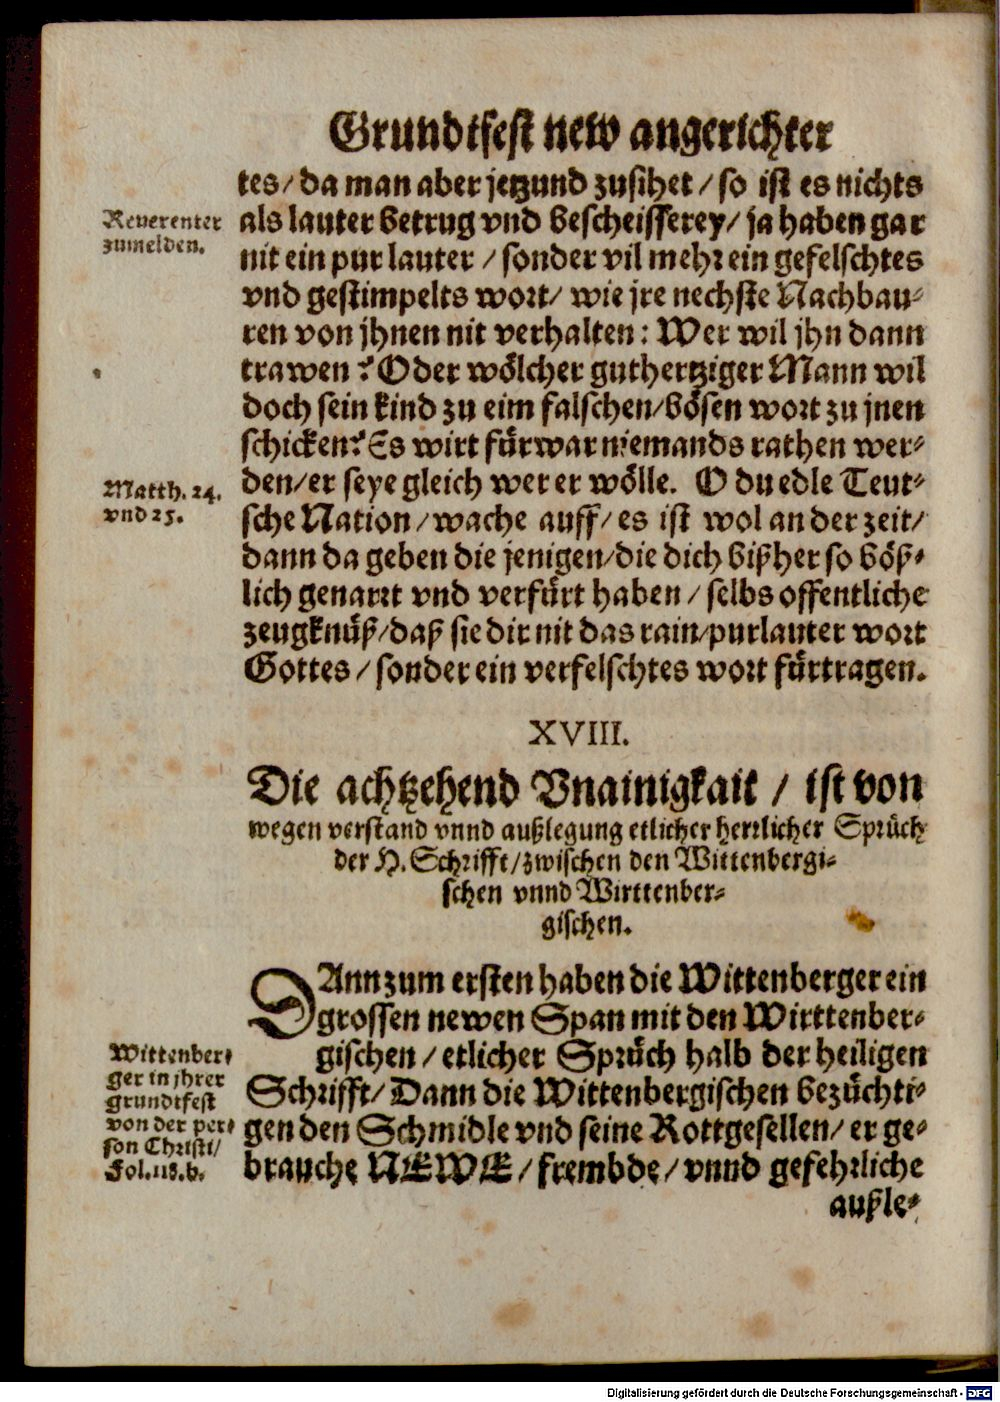 Grundtfest new angerichter
tes/ da man aber jetzund zusihet/ so ist es nichts
Reuerenter
zumelden.
als lauter betrug vnd bescheisserey/ ja haben gar
nit ein pur lauter / sonder vil mehr ein gefelschtes
vnd gestimpelts wort/ wie jre nechste Nachbau-
ren von jhnen nit verhalten: Wer wil jhn dann
trawen? Oder wölcher guthertziger Mann wil
doch sein kind zu eim falschen/bösen wort zu jnen
schicken? Es wirt fürwar niemands rathen wer-
Matth. 24.
vnd 25.
den/er seye gleich wer er wölle. O du edle Teut-
sche Nation/wache auff/es ist wol an der zeit/
dann da geben die jenigen/die dich bißher so böß-
lich genarrt vnd verfürt haben / selbs offentliche
zeugknüß/daß sie dir nit das rain/purlauter wort
Gottes / sonder ein verfelschtes wort fürtragen.
XVIII.
Die achtzehend Vnainigkait / ist von
wegen verstand vnnd außlegung etlicher herrlicher Sprüch
der H. Schrifft/zwischen den Wittenbergi-
schen vnnd Wirttenber-
gischen.
DAnn zum ersten haben die Wittenberger ein
grossen newen Span mit den Wirttenber-
gischen / etlicher Sprüch halb der heiligen
Wittenber-
ger in jhrer
grundtfest
von der per-
son Christi/
Fol.118.b.
Schrifft/ Dann die Wittenbergischen bezüchti-
gen den Schmidle vnd seine Rottgesellen/ er ge-
brauche NEWE/frembde/vnnd gefehrliche
außle-
Digitalisierung gefördert durch die Deutsche Forschungsgemeinschaft - DFG